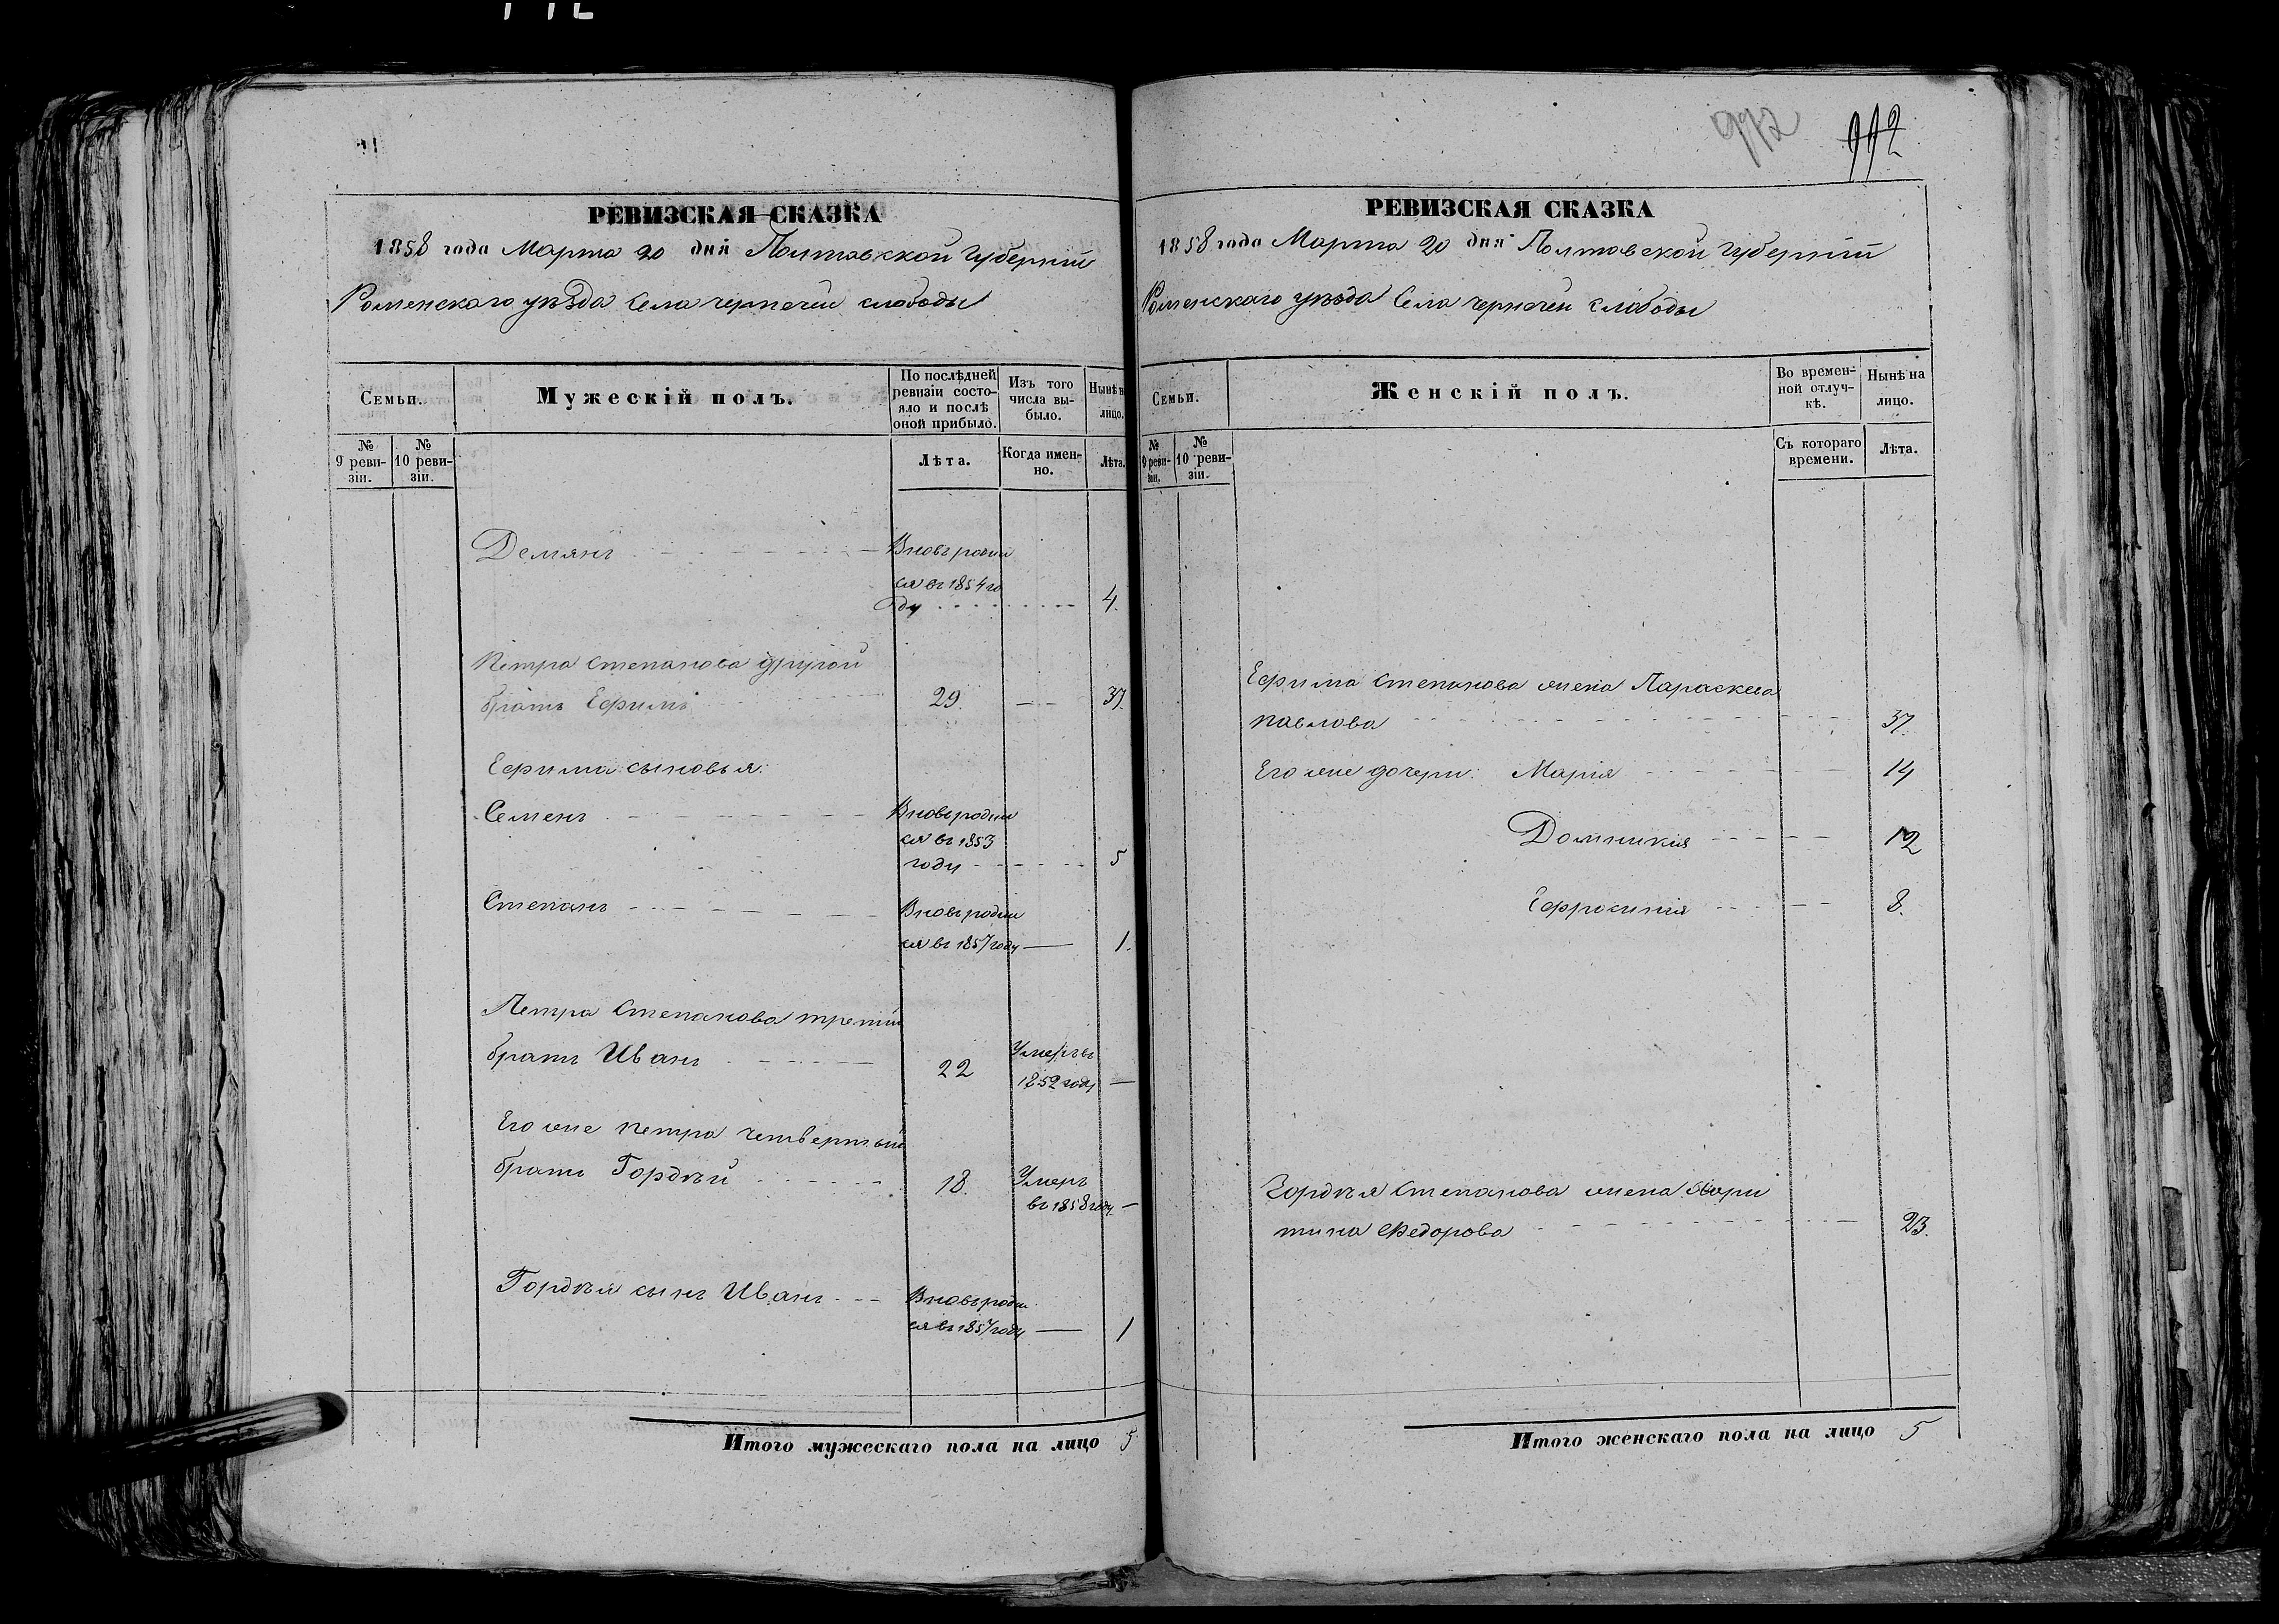 992
992
РЕВИЗСКАЯ СКАЗКА
1858 года Марта 20 дня Полтавской Губернiи
Роменскаго уѣзда Села чернечей слободы
Семьи.
Мужескiй полъ.
По послѣдней ревизiи состояло и послѣ оной прибыло.
Изъ того числа выбыло.
Нынѣ на лицо.
№ 9 ревизiи.
№ 10 ревизiи.
Лѣта.
Когда именно.
Лѣта.
Демянъ
Вновь родил
ся въ 1854 го
ду
4.
Петра Степанова другой
братъ Ефимъ
29.
37.
Ефима сыновья:
Семенъ
Вновь родил
ся въ 1853
году
5
Степанъ
Вновь родил
ся въ 1857 году
1.
Петра Степанова третiй
братъ Иванъ
22
Умеръ въ
1852 году
Его же Петра четвертый
братъ Гордѣй
18.
Умеръ
въ 1858 году
Гордѣя сынъ Иванъ
Вновь родил
ся въ 1857 году
1
Итого мужескаго пола на лицо 5
РЕВИЗСКАЯ СКАЗКА
1858 года Марта 20 дня Полтавской Губернiи
Роменскаго уѣзда Села чернечей слободы
Семьи.
Женскiй полъ.
Во временной отлучкѣ.
Нынѣ на лицо.
№ 9 ревизiи.
№ 10 ревизiи.
Съ котораго времени.
Лѣта.
Ефима Степанова жена Параскева
павлова
37.
Его же дочери: Марiя
14
Домникiя
12
Ефросинiя
8.
Гордѣя Степанова жена
тина Федорова
23.
Итого женскаго пола на лицо 5